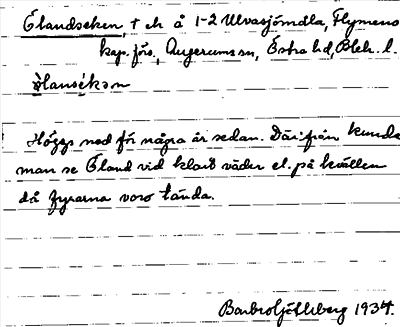 Ölandseken, † ek å 1-2 Ulvasjömåla, Flymens
kap.förs, Augerums sn, Östra hd, Blek. l.
ò̀lansékǝn
Höggs ned för några år sedan. Därifrån kunde
man se Öland vid klart väder el. på kvällen
då fyrarna voro tända.
Barbro Ljöstberg 1934.